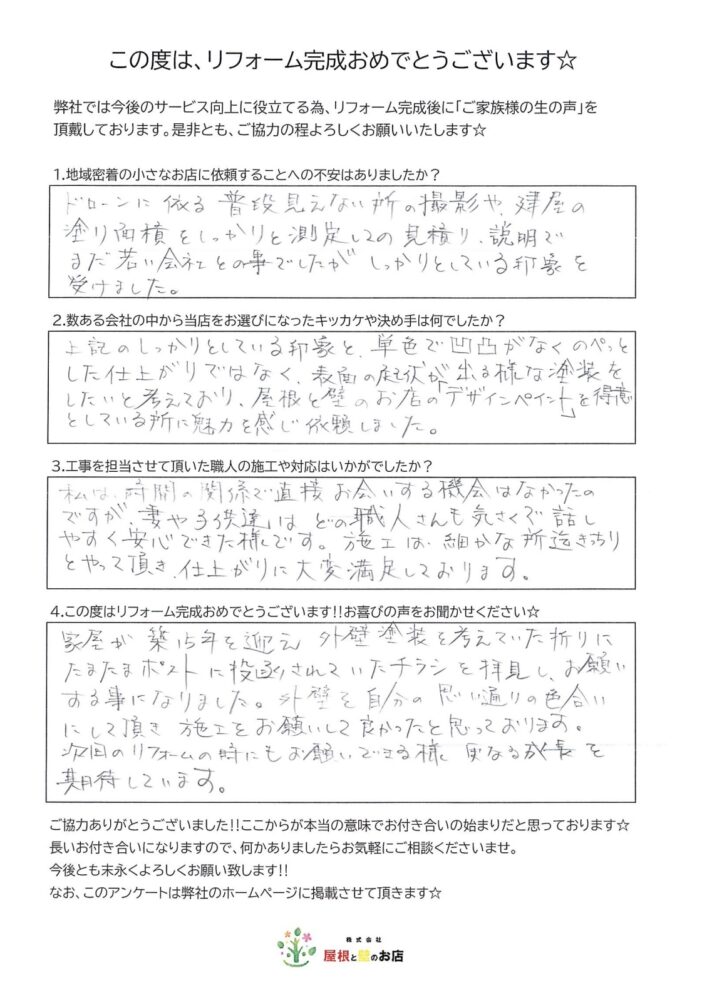 この度は、リフォーム完成おめでとうございます☆
弊社では今後のサービス向上に役立てる為、リフォーム完成後に「ご家族様の生の声」を
頂戴しております。是非とも、ご協力の程よろしくお願いいたします☆
1.地域密着の小さなお店に依頼することへの不安はありましたか?
ドローンに依る普段見えない所の撮影や、建屋の
塗り面積をしっかりと測定しての見積り、説明で
まだ若い会社との事でしたがしっかりとしている印象を
受けました。
2.数ある会社の中から当店をお選びになったキッカケや決め手は何でしたか?
上記のしっかりとしている印象と、単色で凹凸がなくのぺっと
した仕上がりではなく、表面の起伏が出る様な塗装を
したいと考えており、屋根と壁のお店の「デザインペイント」を得意
としている所に魅力を感じ依頼しました。
3.工事を担当させて頂いた職人の施工や対応はいかがでしたか?
私は、時間の関係で直接お会いする機会はなかったの
ですが、妻や子供達はどの職人さんも気さくで話し
やすく安心できた様です。施工は、細かな所迄きっちり
とやって頂き、仕上がりに大変満足しております。
4.この度はリフォーム完成おめでとうございます!!お喜びの声をお聞かせください☆
家屋が築15年を迎え外壁塗装を考えていた折りに
たまたまポストに投函されていたチラシを拝見し、お願い
する事になりました。外壁を自分の思い通りの色合い
にして頂き施工をお願いして良かったと思っております。
次回のリフォームの時にもお願いできる様、更なる成長を
期待しています。
ご協力ありがとうございました!!ここからが本当の意味でお付き合いの始まりだと思っております☆
長いお付き合いになりますので、何かありましたらお気軽にご相談くださいませ。
今後とも末永くよろしくお願い致します!!
なお、このアンケートは弊社のホームページに掲載させて頂きます☆
株式会社
屋根と壁のお店